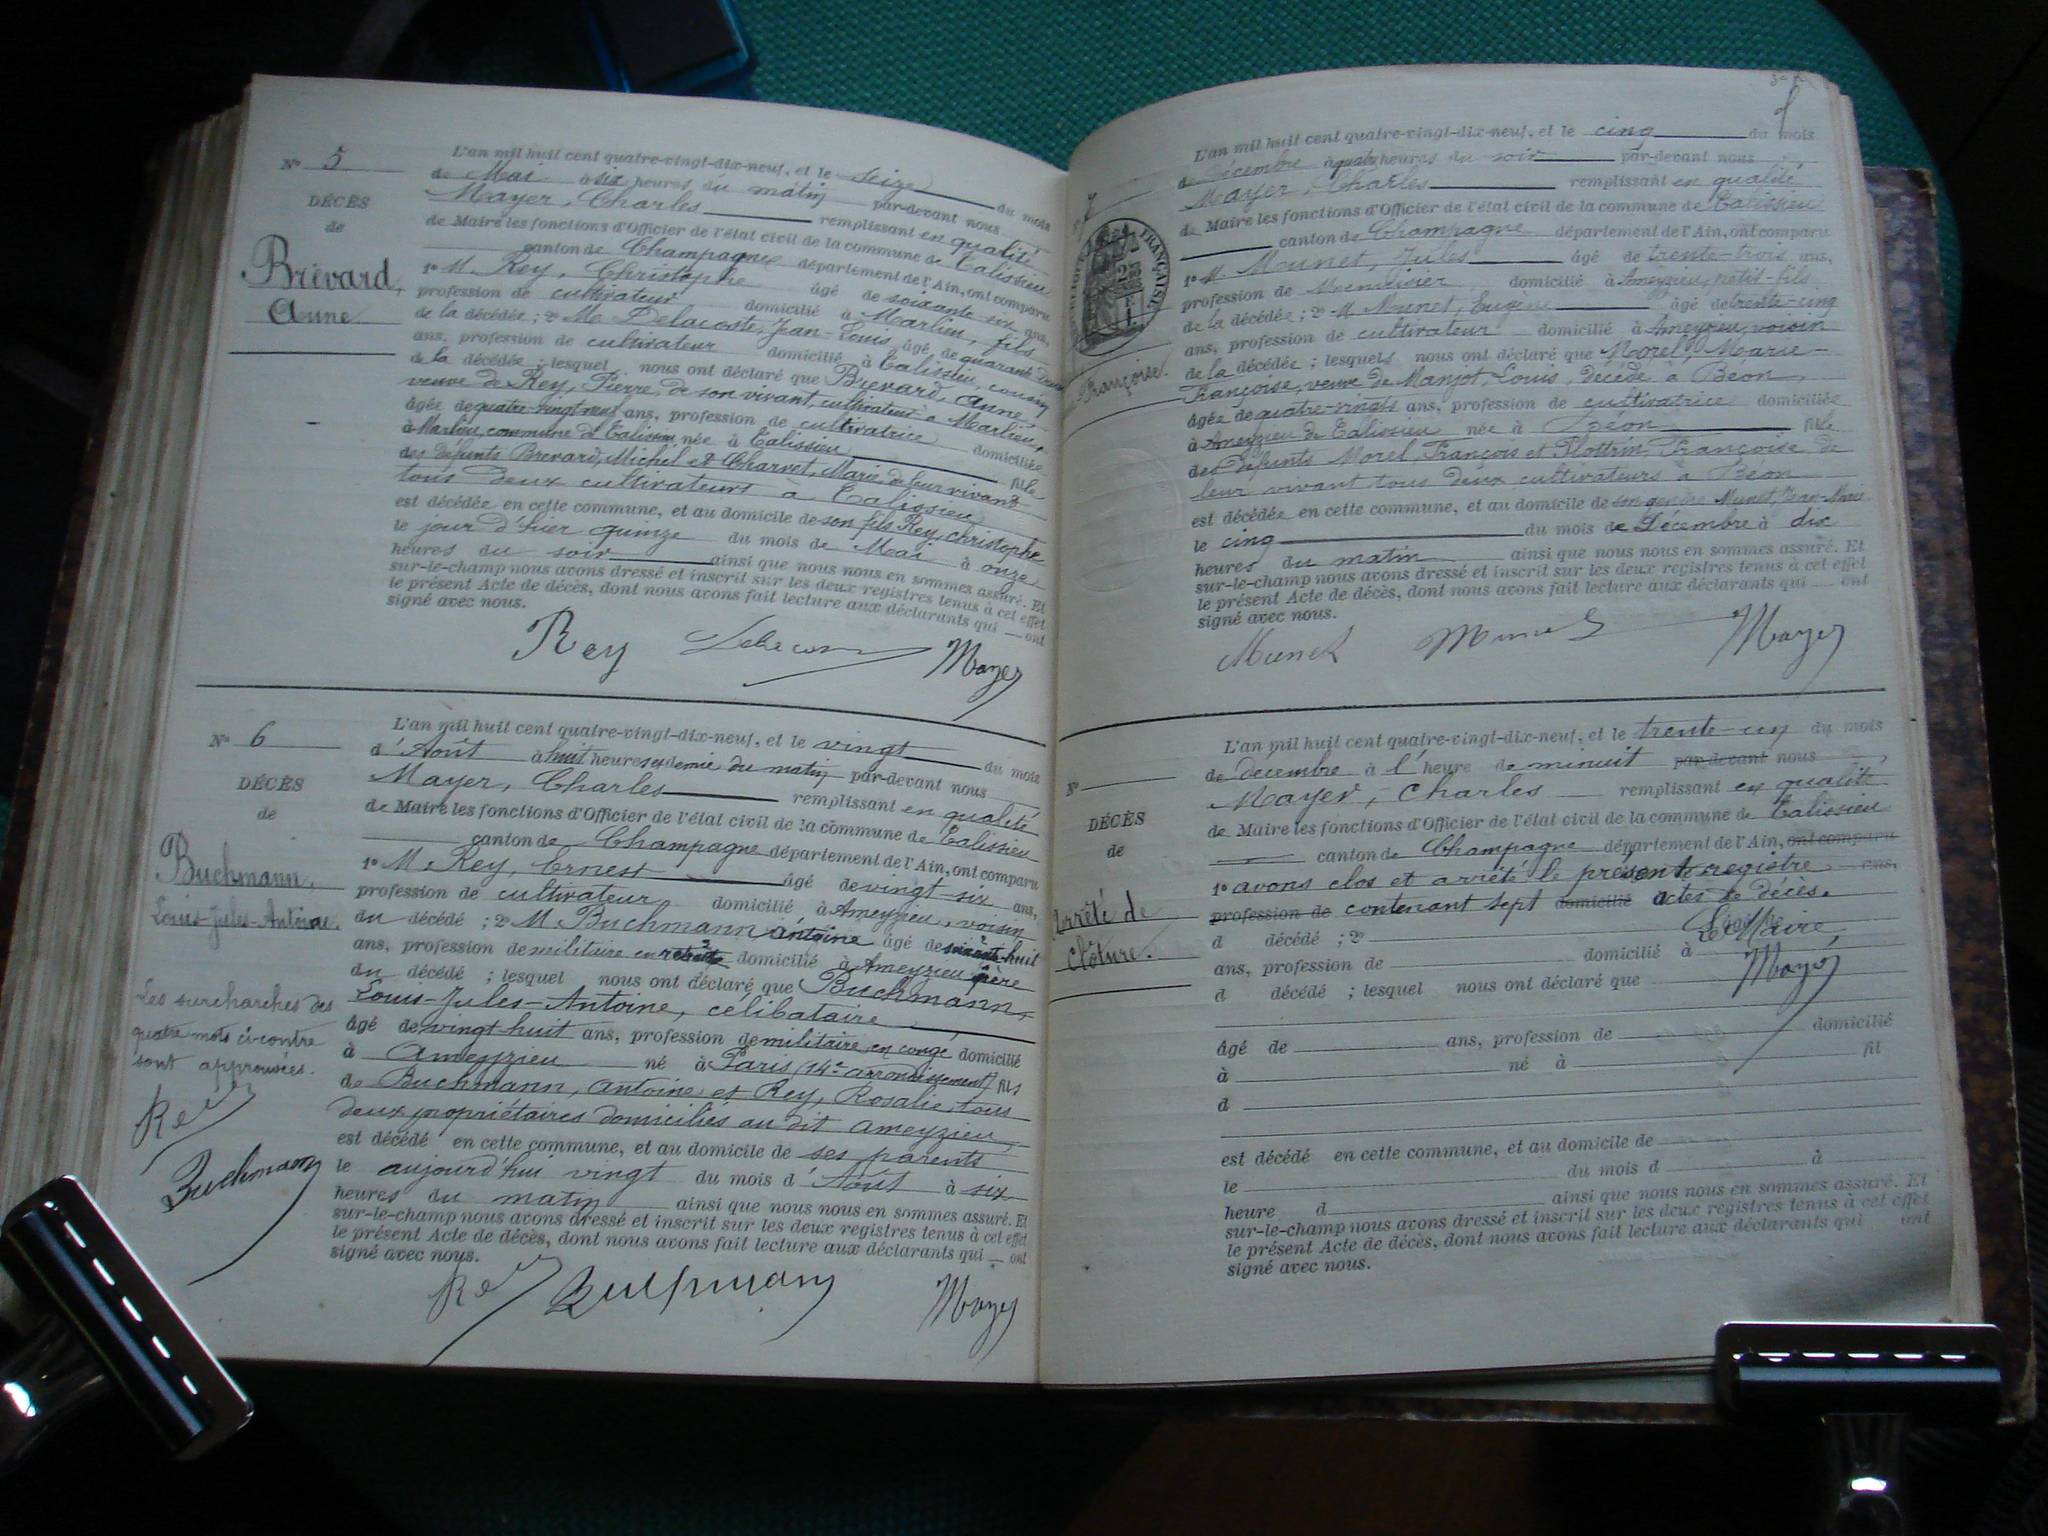 N° 5
DÉCÈS
de
Brevard,
Anne
L'an mil huit cent quatre-vingt-dix-neuf, et le seize du mois
de Mai à six heures du matin par-devant nous
Mayer, Charles remplissant en qualité
de Maire les fonctions d'Officier de l'état civil de la commune de Talissieu
canton de Champagne département de l'Ain, ont comparu
1° M. Rey, Christophe âgé de soixante six ans,
profession de cultivateur domicilié à Marlieu, fils
de la décédée ; 2° M. Delacoste, Jean-Louis, âgé de quarante deux
ans, profession de cultivateur domicilié à Talissieu, cousin
de la décédée ; lesquel nous ont déclaré que Brevard, Anne,
veuve de Rey, Pierre, de son vivant, cultivateur à Marlieu,
âgée de quatre-vingt neuf ans, profession de cultivatrice domiciliée
à Marlieu, commune de Talissieu née à Talissieu fille
des défunts Brevard, Michel et Charvet, Marie de leur vivant
tous deux cultivateurs à Talissieu
est décédée en cette commune, et au domicile de son fils Rey, Christophe
le jour d'hier quinze du mois de Mai à onze
heures du soir ainsi que nous nous en sommes assuré. Et
sur-le-champ nous avons dressé et inscrit sur les deux registres tenus à cet effet
le présent Acte de décès, dont nous avons fait lecture aux déclarants qui ont
signé avec nous.
Rey Mayer
N° 6
DÉCÈS
de
Buchmann,
Louis-Jules-Antoine.
Les surcharches des
quatre mots ci-contre
sont approuvées.
Rey
Buchmann
L'an mil huit cent quatre-vingt-dix-neuf, et le vingt du mois
d'Août à huit heures et demie du matin par-devant nous
Mayer, Charles remplissant en qualité
de Maire les fonctions d'Officier de l'état civil de la commune de Talissieu
canton de Champagne département de l'Ain, ont comparu
1° M. Rey, Ernest âgé de vingt-six ans,
profession de cultivateur domicilié à Ameyzieu, voisin
du décédé ; 2° M. Buchmann antoine âgé de soixante-huit
ans, profession de militaire en retraite domicilié à Ameyzieu père
du décédé ; lesquel nous ont déclaré que Buchmann,
Louis-Jules-Antoine, célibataire
âgé de vingt-huit ans, profession de militaire en congé domicilié
à Ameyzieu né à Paris (14e arrondissement) fils
de Buchmann, Antoine et Rey, Rosalie, tous
deux propriétaires domiciliés au dit Ameyzieu,
est décédé en cette commune, et au domicile de ses parents
le aujourd'hui vingt du mois d'Août à six
heures du matin ainsi que nous nous en sommes assuré. Et
sur-le-champ nous avons dressé et inscrit sur les deux registres tenus à cet effet
le présent Acte de décès, dont nous avons fait lecture aux déclarants qui ont
signé avec nous.
Rey Buchmann Mayer
N° 7
FRANÇAISE
Françoise.
L'an mil huit cent quatre-vingt-dix-neuf, et le cinq du mois
de décembre à quatre heures du soir par-devant nous
Mayer, Charles remplissant en qualité
de Maire les fonctions d'Officier de l'état civil de la commune de Talissieu
canton de Champagne département de l'Ain, ont comparu
1° M. Munet, Jules âgé de trente-trois ans,
profession de menuisier domicilié à Ameyzieu, petit-fils
de la décédée ; 2° M. Munet, Eugène âgé de trente-cinq
ans, profession de cultivateur domicilié à Ameyzieu, voisin
de la décédée ; lesquels nous ont déclaré que Morel, Marie-
Françoise, veuve de Manjot, Louis, décédé à Béon,
âgée de quatre-vingts ans, profession de cultivatrice domiciliée
à Ameyzieu de Talissieu née à Béon fille
des défunts Morel, François et Flottrin, Françoise, de
leur vivant tous deux cultivateurs à Béon
est décédée en cette commune, et au domicile de son gendre Munet, Jean-Marie
le cinq du mois de Décembre à dix
heures du matin ainsi que nous nous en sommes assuré. Et
sur-le-champ nous avons dressé et inscrit sur les deux registres tenus à cet effet
le présent Acte de décès, dont nous avons fait lecture aux déclarants qui ont
signé avec nous.
Munet Munet Mayer
N°
DÉCÈS
de
Arrêté de
clôture.
L'an mil huit cent quatre-vingt-dix-neuf, et le trente-un du mois
de décembre à l'heure de minuit par-devant nous
Mayer, Charles remplissant en qualité
de Maire les fonctions d'Officier de l'état civil de la commune de Talissieu
canton de Champagne département de l'Ain, ont comparu
1° avons clos et arrêté le présent registre ans,
profession de contenant sept domicilié actes de décès.
d décédé ; 2° Le Maire,
ans, profession de domicilié à Mayer
d décédé ; lesquel nous ont déclaré que
âgé de ans, profession de domicilié
à né à fil
d
est décédé en cette commune, et au domicile de
le du mois d à
heure d ainsi que nous nous en sommes assuré. Et
sur-le-champ nous avons dressé et inscrit sur les deux registres tenus à cet effet
le présent Acte de décès, dont nous avons fait lecture aux déclarants qui ont
signé avec nous.